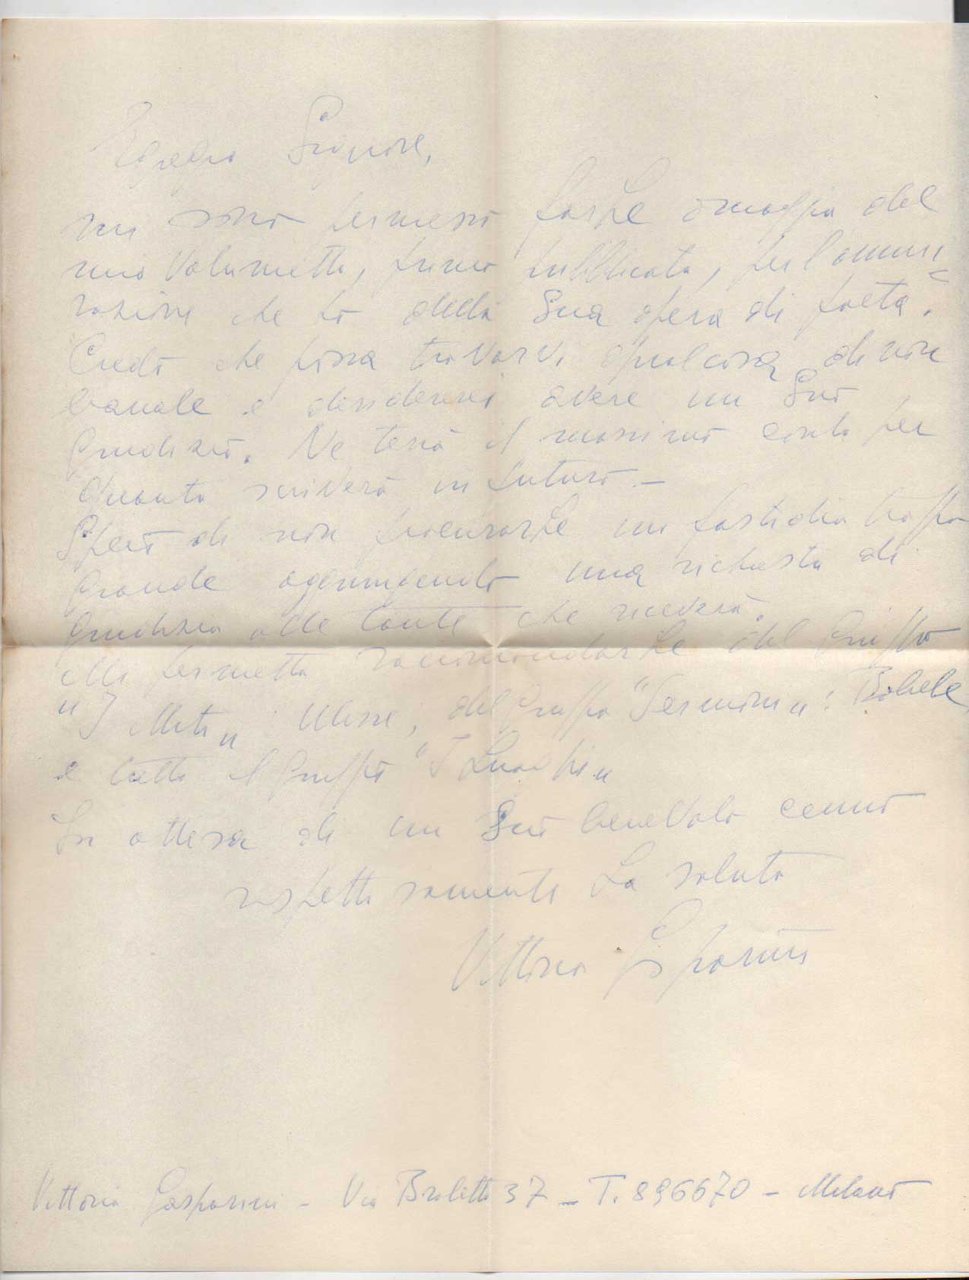 Egregio Signore,
mi sono permessa farLe omaggio del
mio Volumetto, primo pubblicato, per l'ammi-
razione che ho della Sua opera di poeta.
Credo che possa trovarvi qualcosa di non
banale e desidererei avere un Suo
giudizio. Ne terrò il massimo conto per
quanto scriverò in futuro. —
Spero di non procurarLe un fastidio troppo
grande aggiungendo una richiesta di
giudizio alle tante che riceverà.
Mi permetto raccomandarLe del gruppo
"I Miti" Ulisse, del gruppo : Babele
e tutto il gruppo "I
In attesa di un Suo benevolo cenno
rispettosamente La saluto
Vittoria Gasparini
Vittoria Gasparini - Via Broletto 37 - T. 896670 - Milano